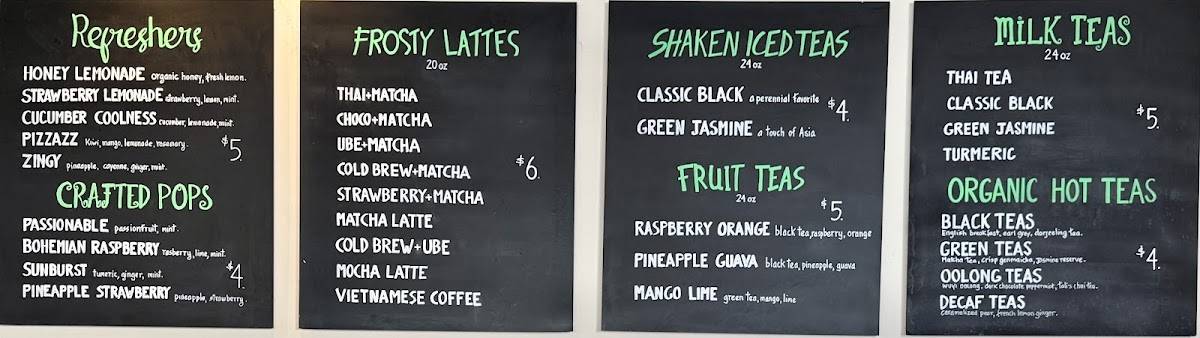 Refreshers
HONEY LEMONADE organic honey, fresh lemon.
STRAWBERRY LEMONADE strawberry, lemon, mint.
CUCUMBER COOLNESS cucumber, lemonade, mint.
PIZZAZZ Kiwi, mango, lemonade, rosemary.
$5.
ZINGY pineapple, cayenne, ginger, mint.
CRAFTED POPS
PASSIONABLE passionfruit, mint.
BOHEMIAN RASPBERRY raspberry, lime, mint.
SUNBURST tumeric, ginger, mint.
$4.
PINEAPPLE STRAWBERRY pineapple, strawberry.
FROSTY LATTES
20 oz
THAI+MATCHA
CHOCO+MATCHA
UBE+MATCHA
COLD BREW+MATCHA
$6.
STRAWBERRY+MATCHA
MATCHA LATTE
COLD BREW+UBE
MOCHA LATTE
VIETNAMESE COFFEE
SHAKEN ICED TEAS
24 oz
CLASSIC BLACK a perennial favorite
$4.
GREEN JASMINE a touch of Asia
FRUIT TEAS
24 oz
$5.
RASPBERRY ORANGE black tea, raspberry, orange
PINEAPPLE GUAVA black tea, pineapple, guava
MANGO LIME green tea, mango, lime
MILK TEAS
24 oz
THAI TEA
CLASSIC BLACK
$5.
GREEN JASMINE
TURMERIC
ORGANIC HOT TEAS
BLACK TEAS
English breakfast, earl grey, darjeeling tea.
GREEN TEAS
Matcha tea, crisp genmaicha, jasmine reserve.
$4.
OOLONG TEAS
wuyi oolong, dark chocolate peppermint, tali's chai tea.
DECAF TEAS
caramelized pear, french lemon ginger.